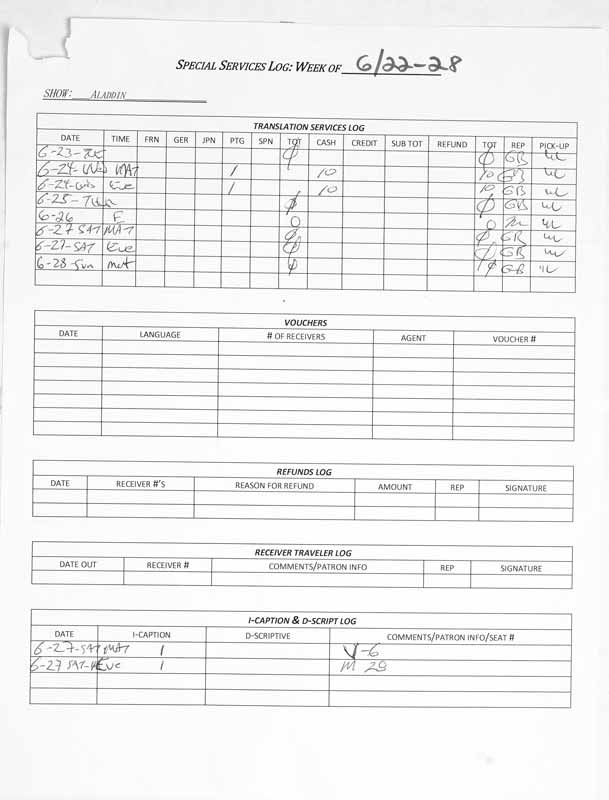 SPECIAL SERVICES LOG: WEEK OF 6/22-28
SHOW: ALADDIN
TRANSLATION SERVICES LOG
DATE TIME FRN GER JPN PTG SPN TOT CASH CREDIT SUB TOT REFUND TOT REP PICK-UP
6-23-Tue Ø Ø GB
6-24-Wed MAT 1 10 10 GB
6-24-Wed Eve 1 10 10 GB
6-25- Ø Ø GB
6-26 E 0 0
6-27 SAT MAT Ø Ø GB
6-27-SAT Eve Ø Ø GB
6-28-Sun mat Ø Ø GB
VOUCHERS
DATE LANGUAGE # OF RECEIVERS AGENT VOUCHER #
REFUNDS LOG
DATE RECEIVER #'S REASON FOR REFUND AMOUNT REP SIGNATURE
RECEIVER TRAVELER LOG
DATE OUT RECEIVER # COMMENTS/PATRON INFO REP SIGNATURE
I-CAPTION & D-SCRIPT LOG
DATE I-CAPTION D-SCRIPTIVE COMMENTS/PATRON INFO/SEAT #
6-27-SAT MAT 1 V-6
6-27 SAT Eve 1 M 29